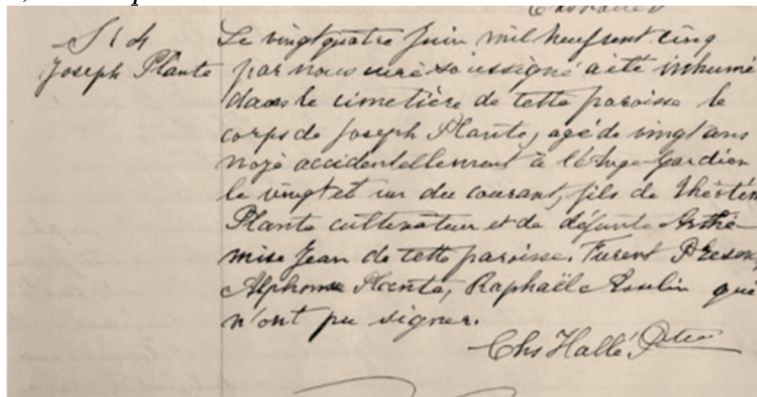 S 14
Joseph Plante
Le vingtquatre juin mil neuf cent cinq
par nous curé soussigné a été inhumé
dans le cimetière de cette paroisse le
corps de Joseph Plante, agé de vingt ans
noyé accidentellement à l'Ange-Gardien
le vingt et un du courant, fils de
Plante cultivateur et de défunte Arthé-
mise Jean de cette paroisse. Furent
Alphonse Plante, Raphaël Asselin qui
n'ont pu signer.
Chs Hallé Ptre